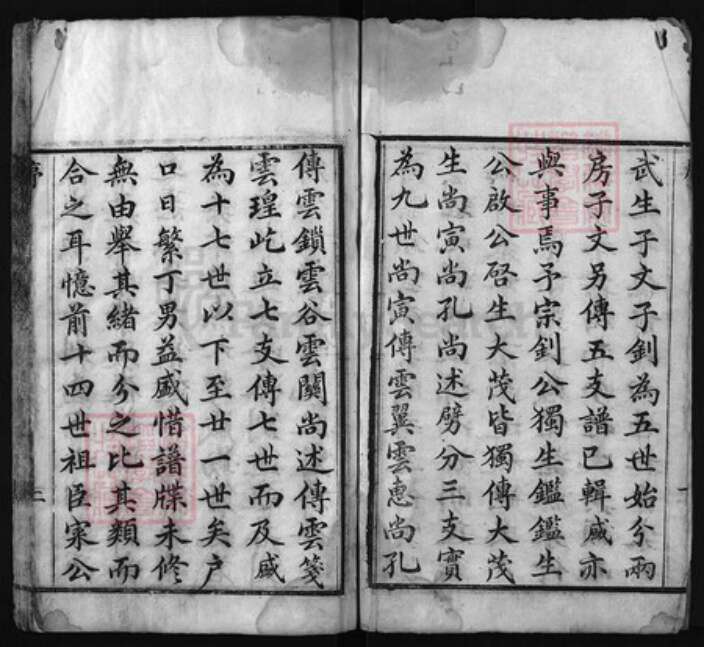 武生子文子釗為五世始分兩
房子文另傳五支譜已輯盛亦
與事焉予宗釗公獨生鑑鑑生
公啟公啓生大茂皆獨傳大茂
生尚寅尚孔尚述劈分三支實
為九世尚寅傳雲翼雲惠尚孔
傳雲鎖雲谷雲關尚述傳雲箋
雲瑝屹立七支傳七世而及盛
為十七世以下至廿一世矣户
口日繁丁男益盛惜譜牒未修
無由舉其緒而分之比其類而
合之耳憶前十四世祖臣寀公
序
三